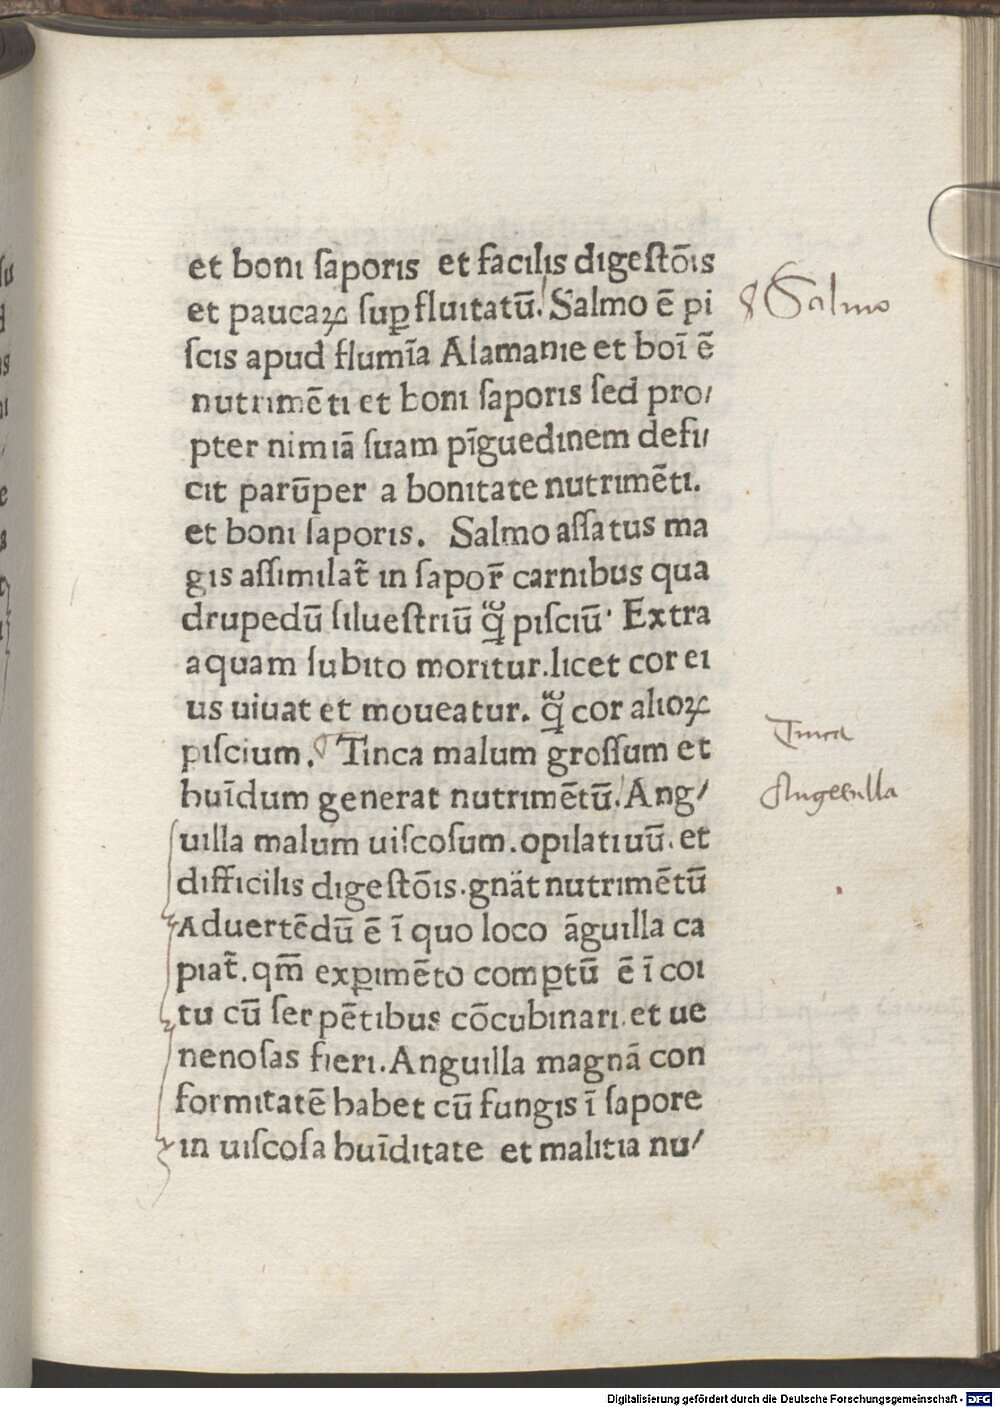 et boni ſaporis et facilis digeſtōis
et paucaꝝ ſuꝑfluitatū. Salmo ē pi
ſcis apud flumīa Alamanie et boī ē
nutrimēti et boni ſaporis ſed pro/
pter nimiā ſuam pīguedinem defi/
cit parūper a bonitate nutrimēti.
et boni ſaporis. Salmo aſſatus ma
gis aſſimilat᷑ in ſapor̄ carnibus qua
drupedū ſilueſtriū ꝙ̈ piſciū· Extra
aquam ſubito moritur.licet cor ei
us uiuat et moueatur. ꝙ̈ cor alioꝝ
piſcium. Tinca malum groſſum et
huīdum generat nutrimētū. Ang/
uilla malum uiſcoſum.opilatiuū.et
difficilis digeſtōis.gnāt nutrimētū
Aduertēdū ē ī quo loco āguilla ca
piat᷑.qm̄ exꝑimēto comꝑtū ē ī coi
tu cū ſerpētibus cōcubinari.et ue
nenoſas fieri.Anguilla magnā con
formitatē habet cū fungis ī ſapore
in uiſcoſa huīditate et malitia nu/
Salmo
Tinca
Angwilla
Digitalisierung gefördert durch die Deutsche Forschungsgemeinschaft - DFG